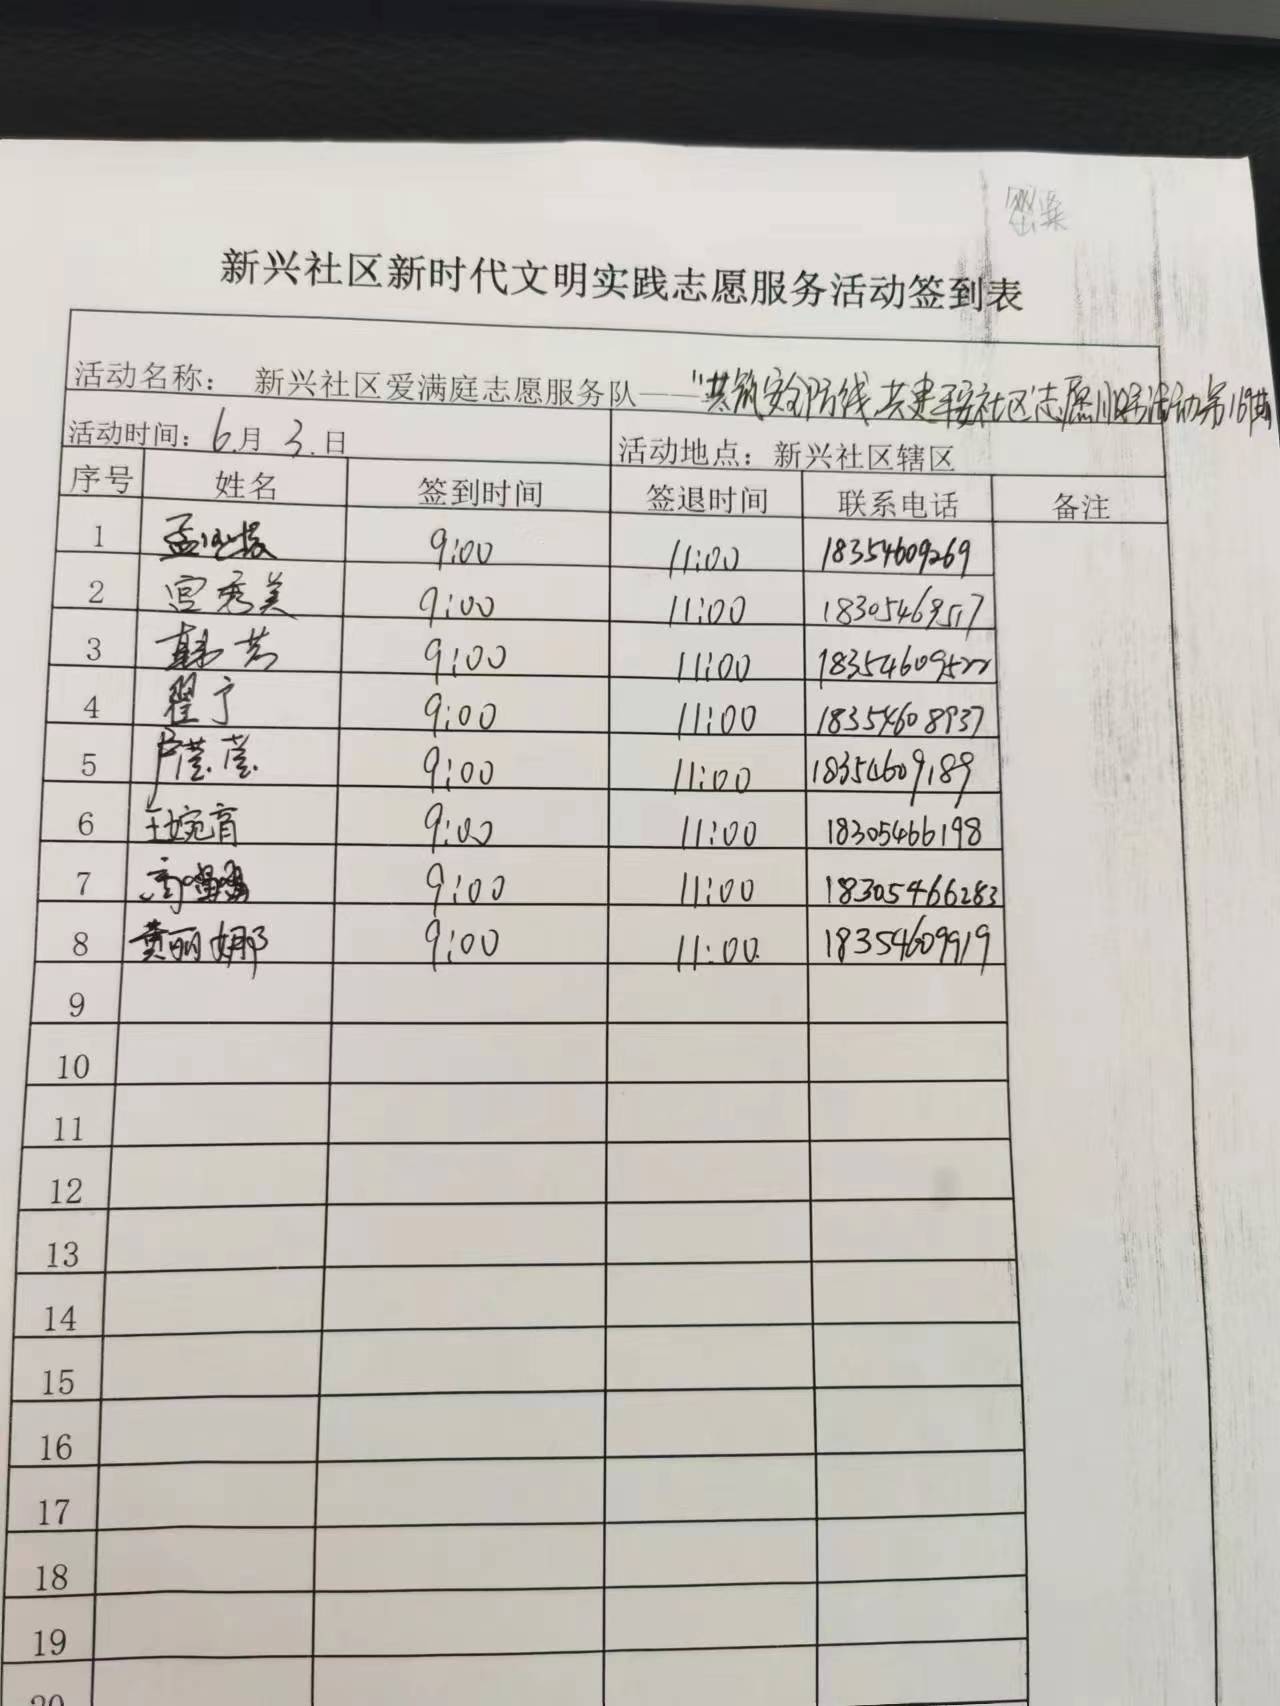 新兴社区新时代文明实践志愿服务活动签到表
活动名称： 新兴社区爱满庭志愿服务队——"共筑安全防线 共建平安社区"志愿服务活动第16期
活动时间：6月3.日 活动地点：新兴社区辖区
序号 姓名 签到时间 签退时间 联系电话 备注
1 9:00 11:00 18354609269
2 宫秀美 9:00 11:00 18305469517
3 韩芳 9:00 11:00 18354609522
4 翟宁 9:00 11:00 18354608937
5 卢莹莹 9:00 11:00 18354609189
6 王婉育 9:00 11:00 18305466198
7 9:00 11:00 18305466283
8 黄丽娜 9:00 11:00 18354609919
9
10
11
12
13
14
15
16
17
18
19
20